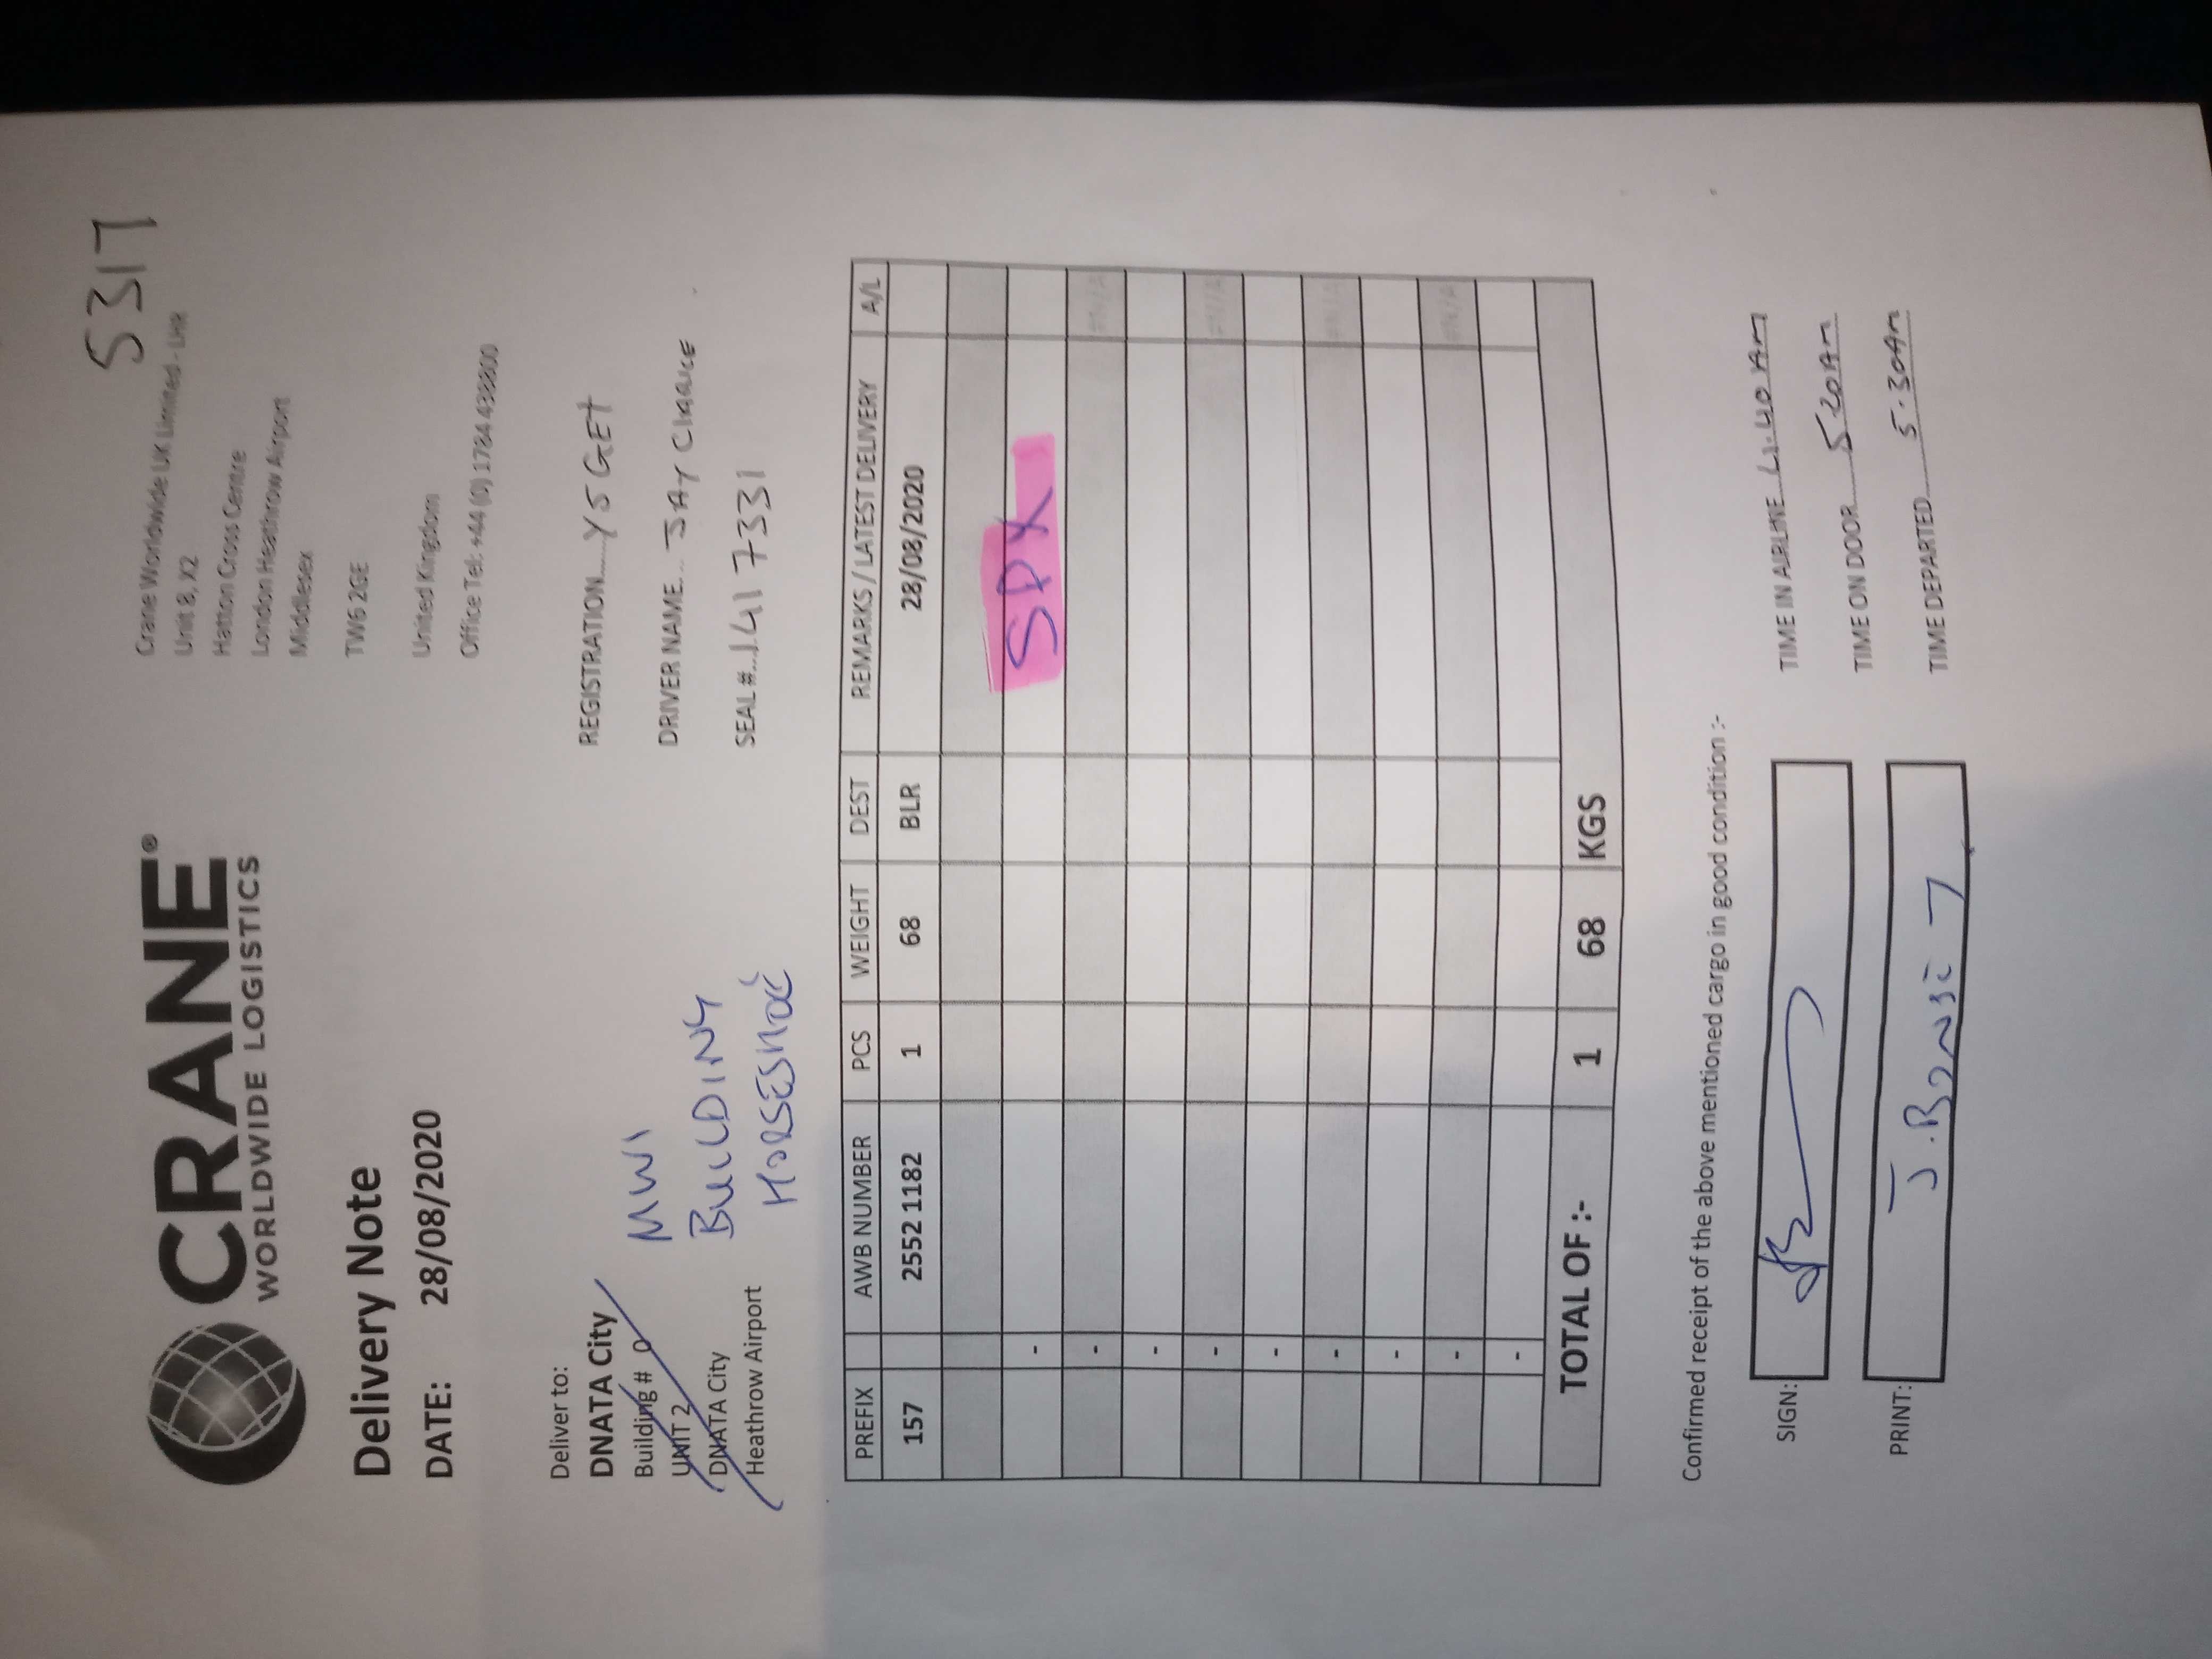 CRANE®
WORLDWIDE LOGISTICS
5317
Crane Worldwide UK Limited - LHR
Unit 8, X2
Hatton Cross Centre
London Heathrow Airport
Middlesex
TW6 2GE
United Kingdom
Office Tel: +44 (0) 1784 433800
Delivery Note
DATE: 28/08/2020
Deliver to:
DNATA City
Building # 0
UNIT 2
DNATA City
Heathrow Airport
MWI
BUILDING
HORSESHOE
REGISTRATION YS GET
DRIVER NAME JAY
SEAL # 1417331
PREFIX AWB NUMBER PCS WEIGHT DEST REMARKS / LATEST DELIVERY A/L
157 2552 1182 1 68 BLR 28/08/2020
- SPX
- #N/A
-
- #N/A
-
- #N/A
-
- #N/A
-
TOTAL OF :- 1 68 KGS
Confirmed receipt of the above mentioned cargo in good condition :-
SIGN:
PRINT:
TIME IN AIRLINE 4.40 AM
TIME ON DOOR 5 20AM
TIME DEPARTED 5.30AM